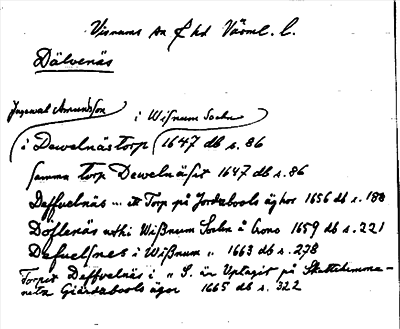 Visnums sn Visnums hd Värml. l.
Dälvenäs
Ingewal Amundsson i Wißnum Sochn
i Dewelnästorp 1647 db s. 86
samma torp Dewelnäset 1647 db s. 86
Deffuelnäs ... itt Torp på Jordebooks äghor 1656 db s. 188
Döflenäs uthi Wißnum Sochn å Crono 1659 db s. 221
Defuelsnes i Wißnum " 1663 db s. 278
Torpet Deffvelnäs i " S. är Uptagit på Skattehemma-
netz Giärdzbools ägor 1665 db s. 322